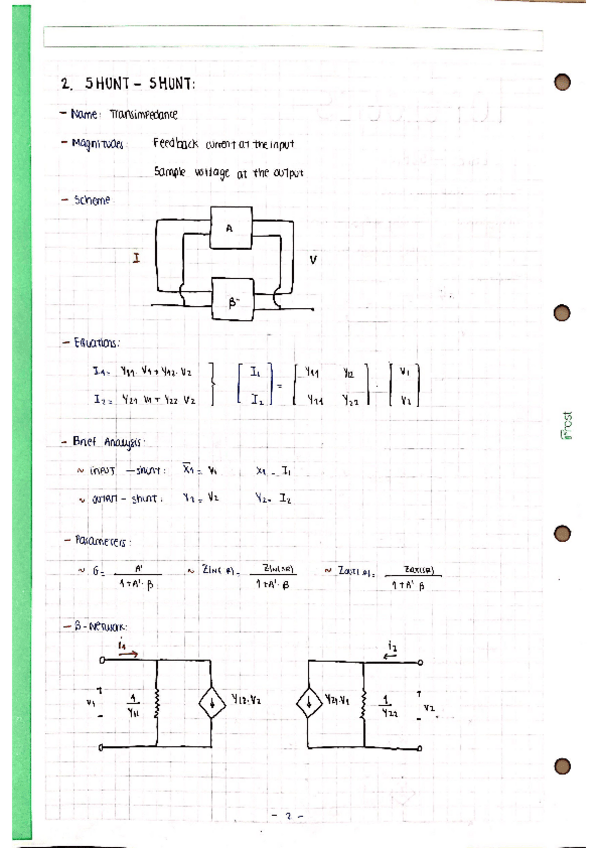 2. SHUNT - SHUNT:
- Name: Transimpedance
- Magnitudes: Feedback current at the input
Sample voltage at the output
- Scheme
A
I
V
β
- Equations:
I1= Y11·V1+Y12·V2
I2= Y21 V1+Y22 V2
[I1 I2] = [Y11 Y12 Y21 Y22] · [V1 V2]
- Brief Analysis:
~ INPUT - shunt: X1= V1 X1= I1
~ OUTPUT - shunt: Y2= V2 Y2= I2
- Parameters:
~ G= A' / 1+A'·β ~ ZIN(F)= ZIN(SR) / 1+A'·β ~ ZOUT(F)= ZOUT(SR) / 1+A'·β
- β-Network:
i1
i2
V1 + - 1/Y11 Y12·V2 Y21·V1 1/Y22 + - V2
- 2 -